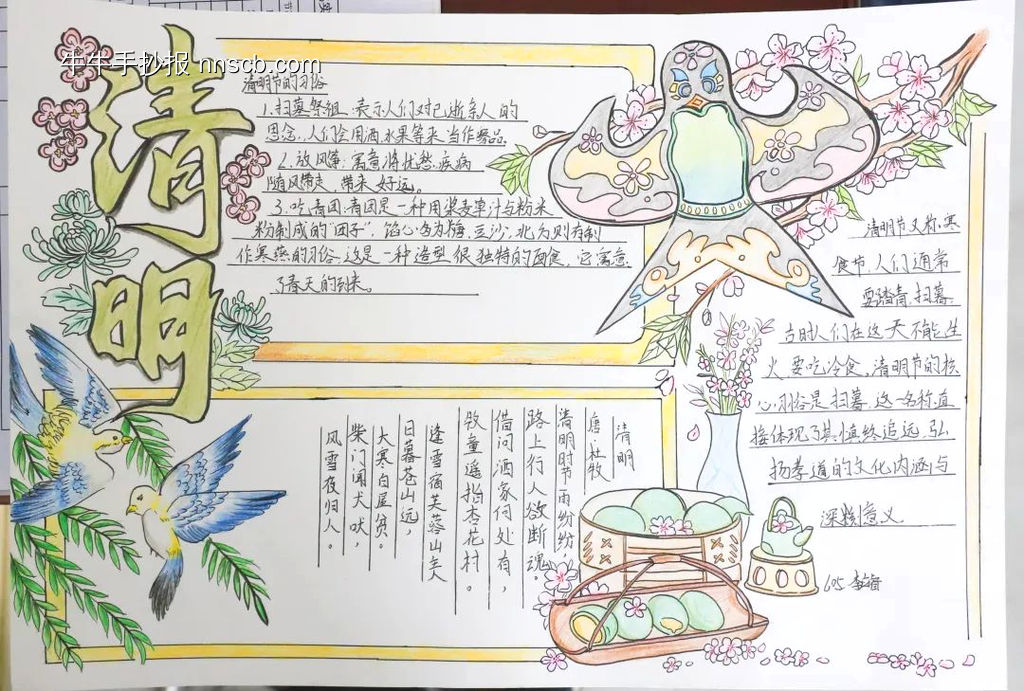 牛牛手抄报 nnscb.com
清明
清明节的习俗
1.扫墓祭祖:表示人们对已逝亲人的
思念,人们会用酒水果等来当作祭品。
2.放风筝:寓意将忧愁、疾病
随风带走,带来好运。
3.吃青团.青团是一种用浆麦草汁与粉米
粉制成的"团子",馅心多为 豆沙,北方则有制
作寒燕的习俗.这是一种造型很独特的面食,它寓意
了春天的到来。
清明
唐 杜牧
清明时节雨纷纷
路上行人欲断魂。
借问酒家何处有,
牧童遥指杏花村。
逢雪宿芙蓉山主人
日暮苍山远,
大寒白屋贫。
柴门闻犬吠,
风雪夜归人。
清明节又称寒
食节.人们通常
要踏青.扫墓.
古时人们在这天不能生
火.要吃冷食.清明节的核
心习俗是扫墓.这一名称直
接体现了其慎终追远.弘
扬孝道的文化内涵与
深刻意义
605 李